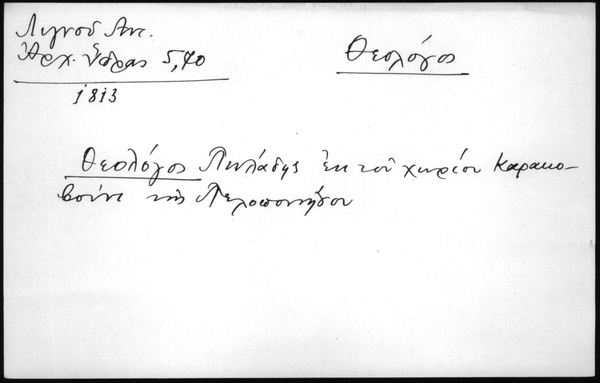 Λιγνοῦ Ἀντ.
Ἀρχ. Ὕδρας 5,40
1813
Θεολόγος
Θεολόγος Πυλάδης ἐκ τοῦ χωρίου Καρακο-
βούνι τῆς Πελοποννήσου